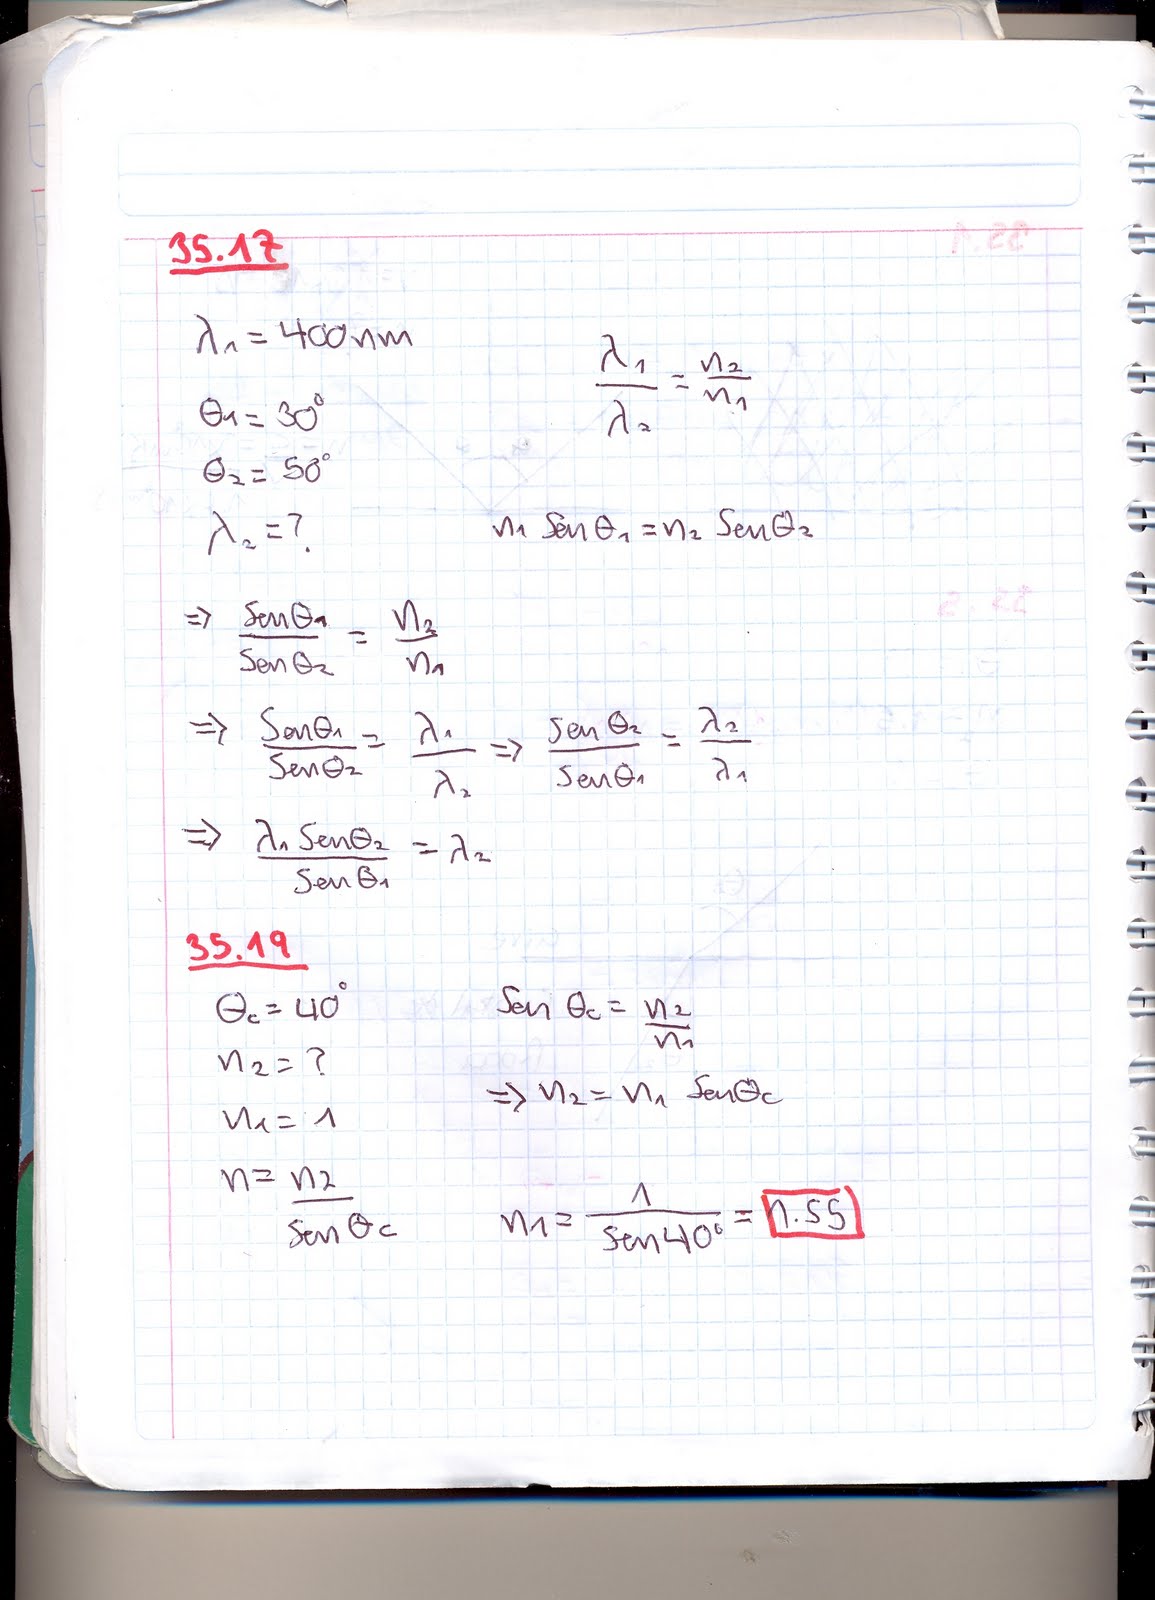 35.17
λ1 = 400nm
λ1/λ2 = n2/n1
θ1 = 30°
θ2 = 50°
λ2 = ?
n1 Sen θ1 = n2 Sen θ2
⇒ Sen θ1/Sen θ2 = n2/n1
⇒ Sen θ1/Sen θ2 = λ1/λ2 ⇒ Sen θ2/Sen θ1 = λ2/λ1
⇒ λ1 Sen θ2/Sen θ1 = λ2
35.19
θc = 40°
Sen θc = n2/n1
n2 = ?
⇒ n2 = n1 Sen θc
n1 = 1
n = n2/Sen θc
n1 = 1/Sen 40° = 1.55